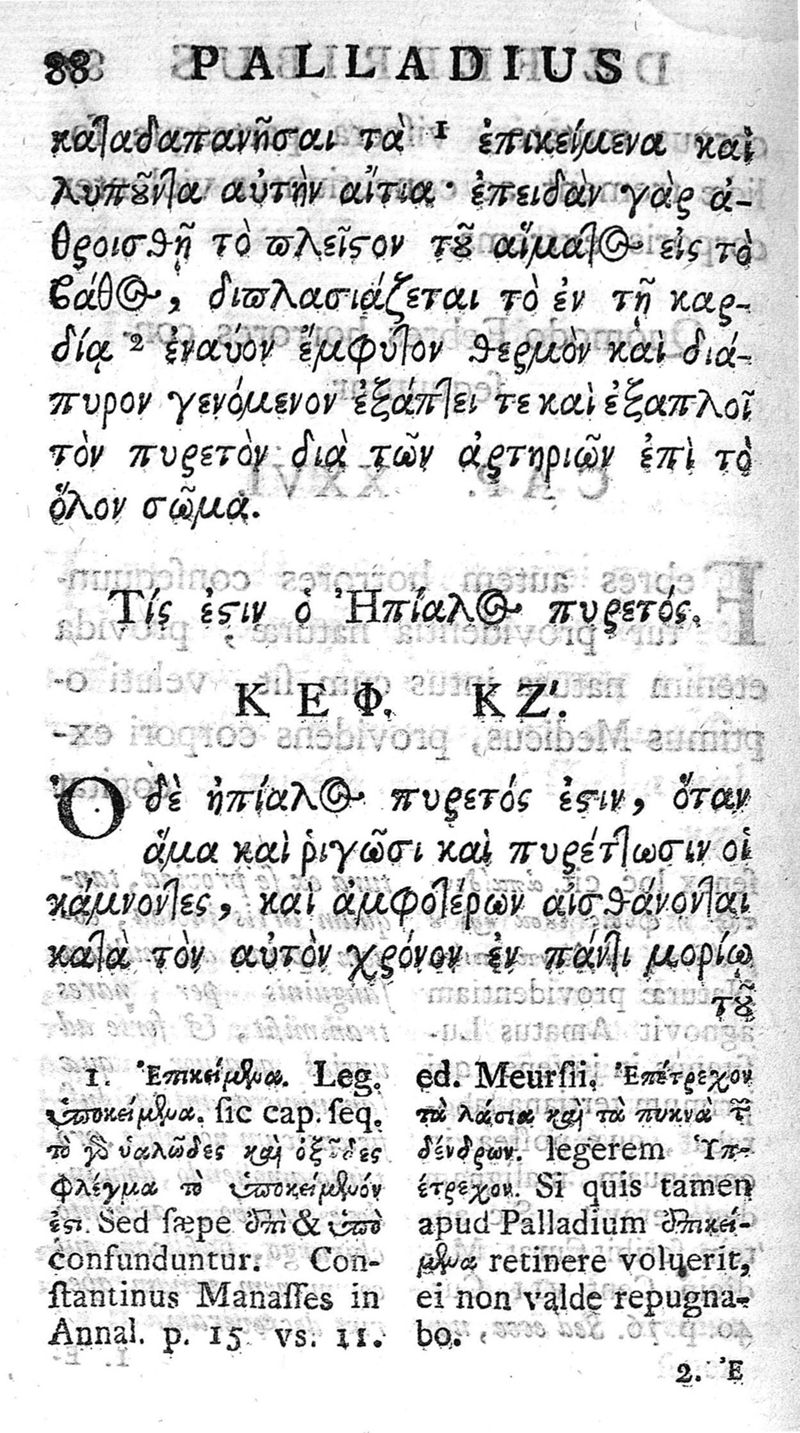 88 PALLADIUS
καταδαπανῆσαι τὰ ¹ ἐπικείμενα καὶ
λυποῦντα αὐτὴν αἴτια· ἐπειδὰν γὰρ ἀ-
θροισθῇ τὸ πλεῖστον τοῦ αἵματος εἰς τὸ
βάθος, διπλασιάζεται τὸ ἐν τῇ καρ-
δίᾳ ² ἐναύον ἔμφυτον θερμὸν καὶ διά-
πυρον γενόμενον ἐξάπτει τε καὶ ἐξαπλοῖ
τὸν πυρετὸν διὰ τῶν ἀρτηριῶν ἐπὶ τὸ
ὅλον σῶμα.
Τίς ἐστιν ὁ Ἠπίαλος πυρετός.
ΚΕΦ. ΚΖʹ.
Ὁ δὲ ἠπίαλος πυρετός ἐστιν, ὅταν
ἅμα καὶ ῥιγῶσι καὶ πυρέττωσιν οἱ
κάμνοντες, καὶ ἀμφοτέρων αἰσθάνονται
κατὰ τὸν αὐτὸν χρόνον ἐν παντὶ μορίῳ
τοῦ
1. Ἐπικείμενα. Leg.
ὑποκείμενα. sic cap. seq.
τὸ γὰρ ὑαλῶδες καὶ ὀξῶδες
φλέγμα τὸ ὑποκείμενόν
ἐστι. Sed sæpe ἐπὶ & ὑπὸ
confunduntur. Con-
stantinus Manasses in
Annal. p. 15 vs. 11.
ed. Meursii. Ἐπέτρεχον
τὰ λάσια καὶ τὰ πυκνὰ τῶν
δένδρων. legerem Ὑπ-
έτρεχον. Si quis tamen
apud Palladium ἐπικεί-
μενα retinere voluerit,
ei non valde repugna-
bo.
2. Ἐ